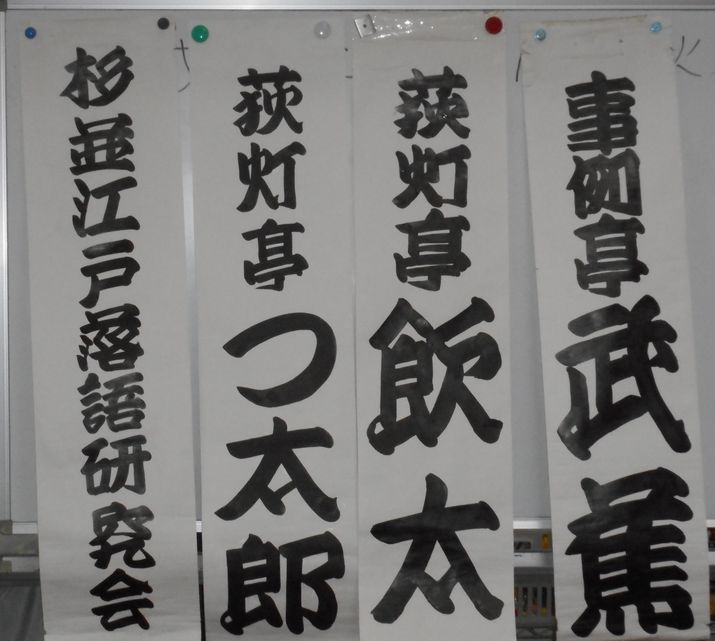 事例亭武蕉
荻灯亭飲太
荻灯亭つ太郎
杉並江戸落語研究会